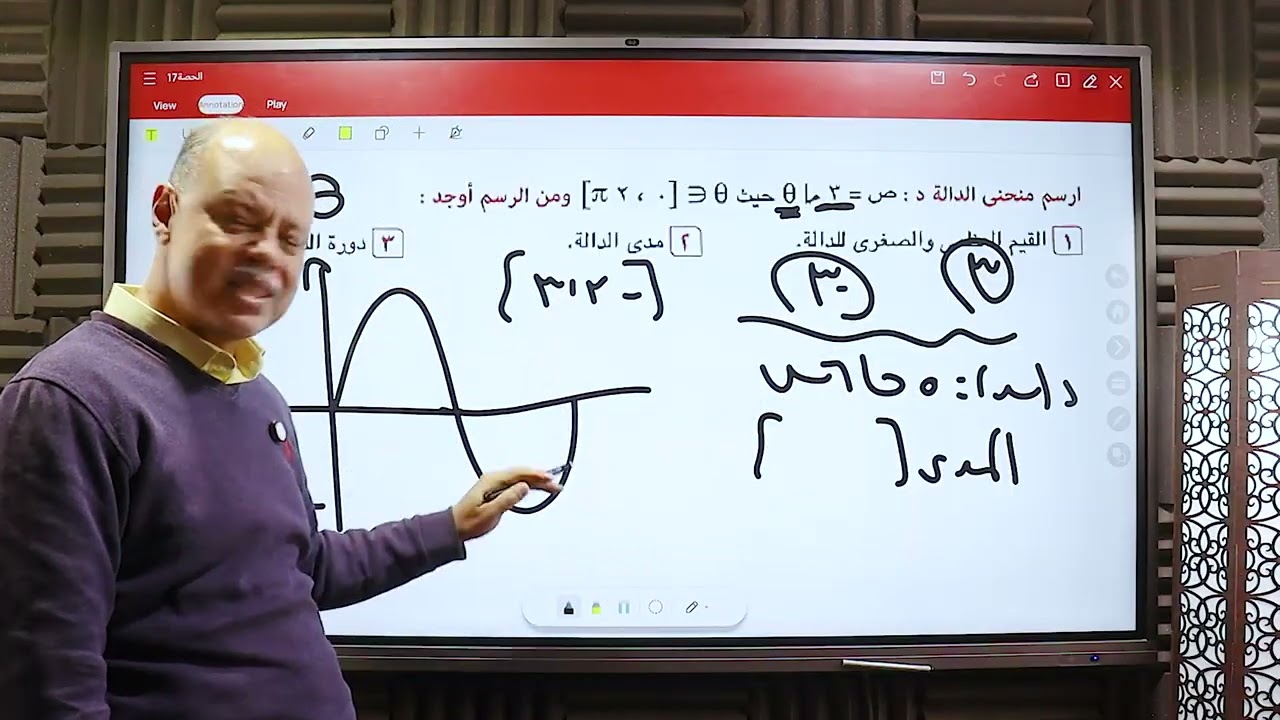 الحصة17
View Annotation Play
ارسم منحنى الدالة د : ص = ٣ ما θ حيث θ ∈ [٠ ، ٢ π] ومن الرسم أوجد :
١ القيم العظمى والصغرى للدالة.
٢ مدى الدالة.
٣ دورة
٣ -٣
[-٣،٣]
المدى [ ]